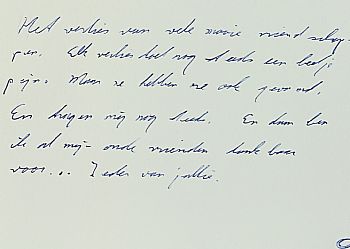 Het verlies van vele mooie vriendschap-
pen. Elk verlies doet nog steeds een beetje
pijn. Maar ze hebben me ook gevormd.
En dragen mij nog steeds. En daar ben
ik al mijn oude vrienden dankbaar
voor... Ieder van jullie.